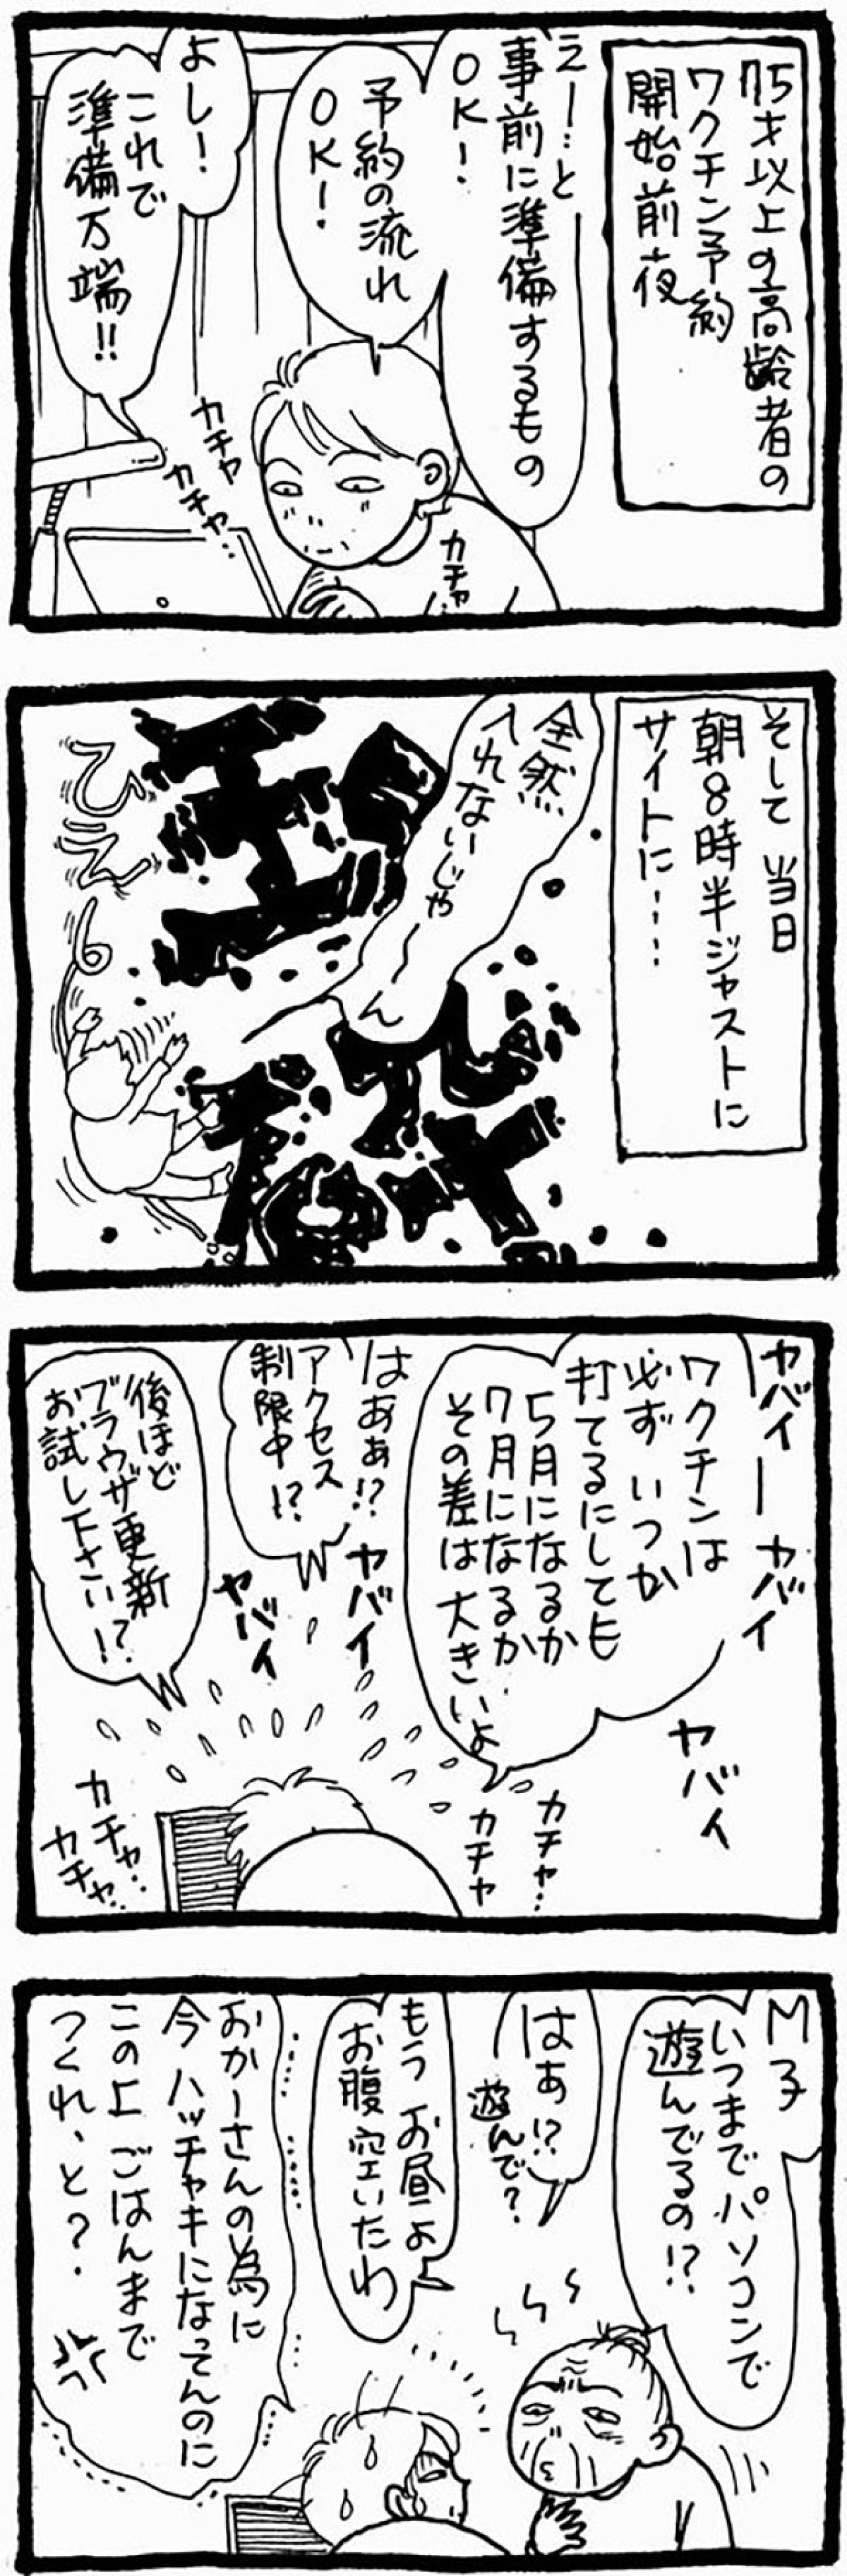 75才以上の高齢者の
ワクチン予約
開始前夜
えー…と
事前に準備するもの
OK!
予約の流れ
OK!
よし!
これで
準備万端!!
カチャ
カチャ…
カチャ…
そして当日
朝8時半ジャストに
サイトに……
全然
入れないじゃ〜ん
ひえ〜
ヤバイー ヤバイ
ヤバイ
ワクチンは
必ずいつか
打てるにしても
5月になるか
7月になるか
その差は大きいよ
はあぁ!?
アクセス
制限中!?
ヤバイ
ヤバイ
後ほど
ブラウザ更新
お試し下さい!?
カチャ…
カチャ
カチャ…
カチャ…
M子
いつまでパソコンで
遊んでるの!?
はあ!?
遊んで?
もうお昼よ
お腹空いたわ
……
おかーさんの為に
今ハッチャキになってんのに
この上ごはんまで
つくれ、と?